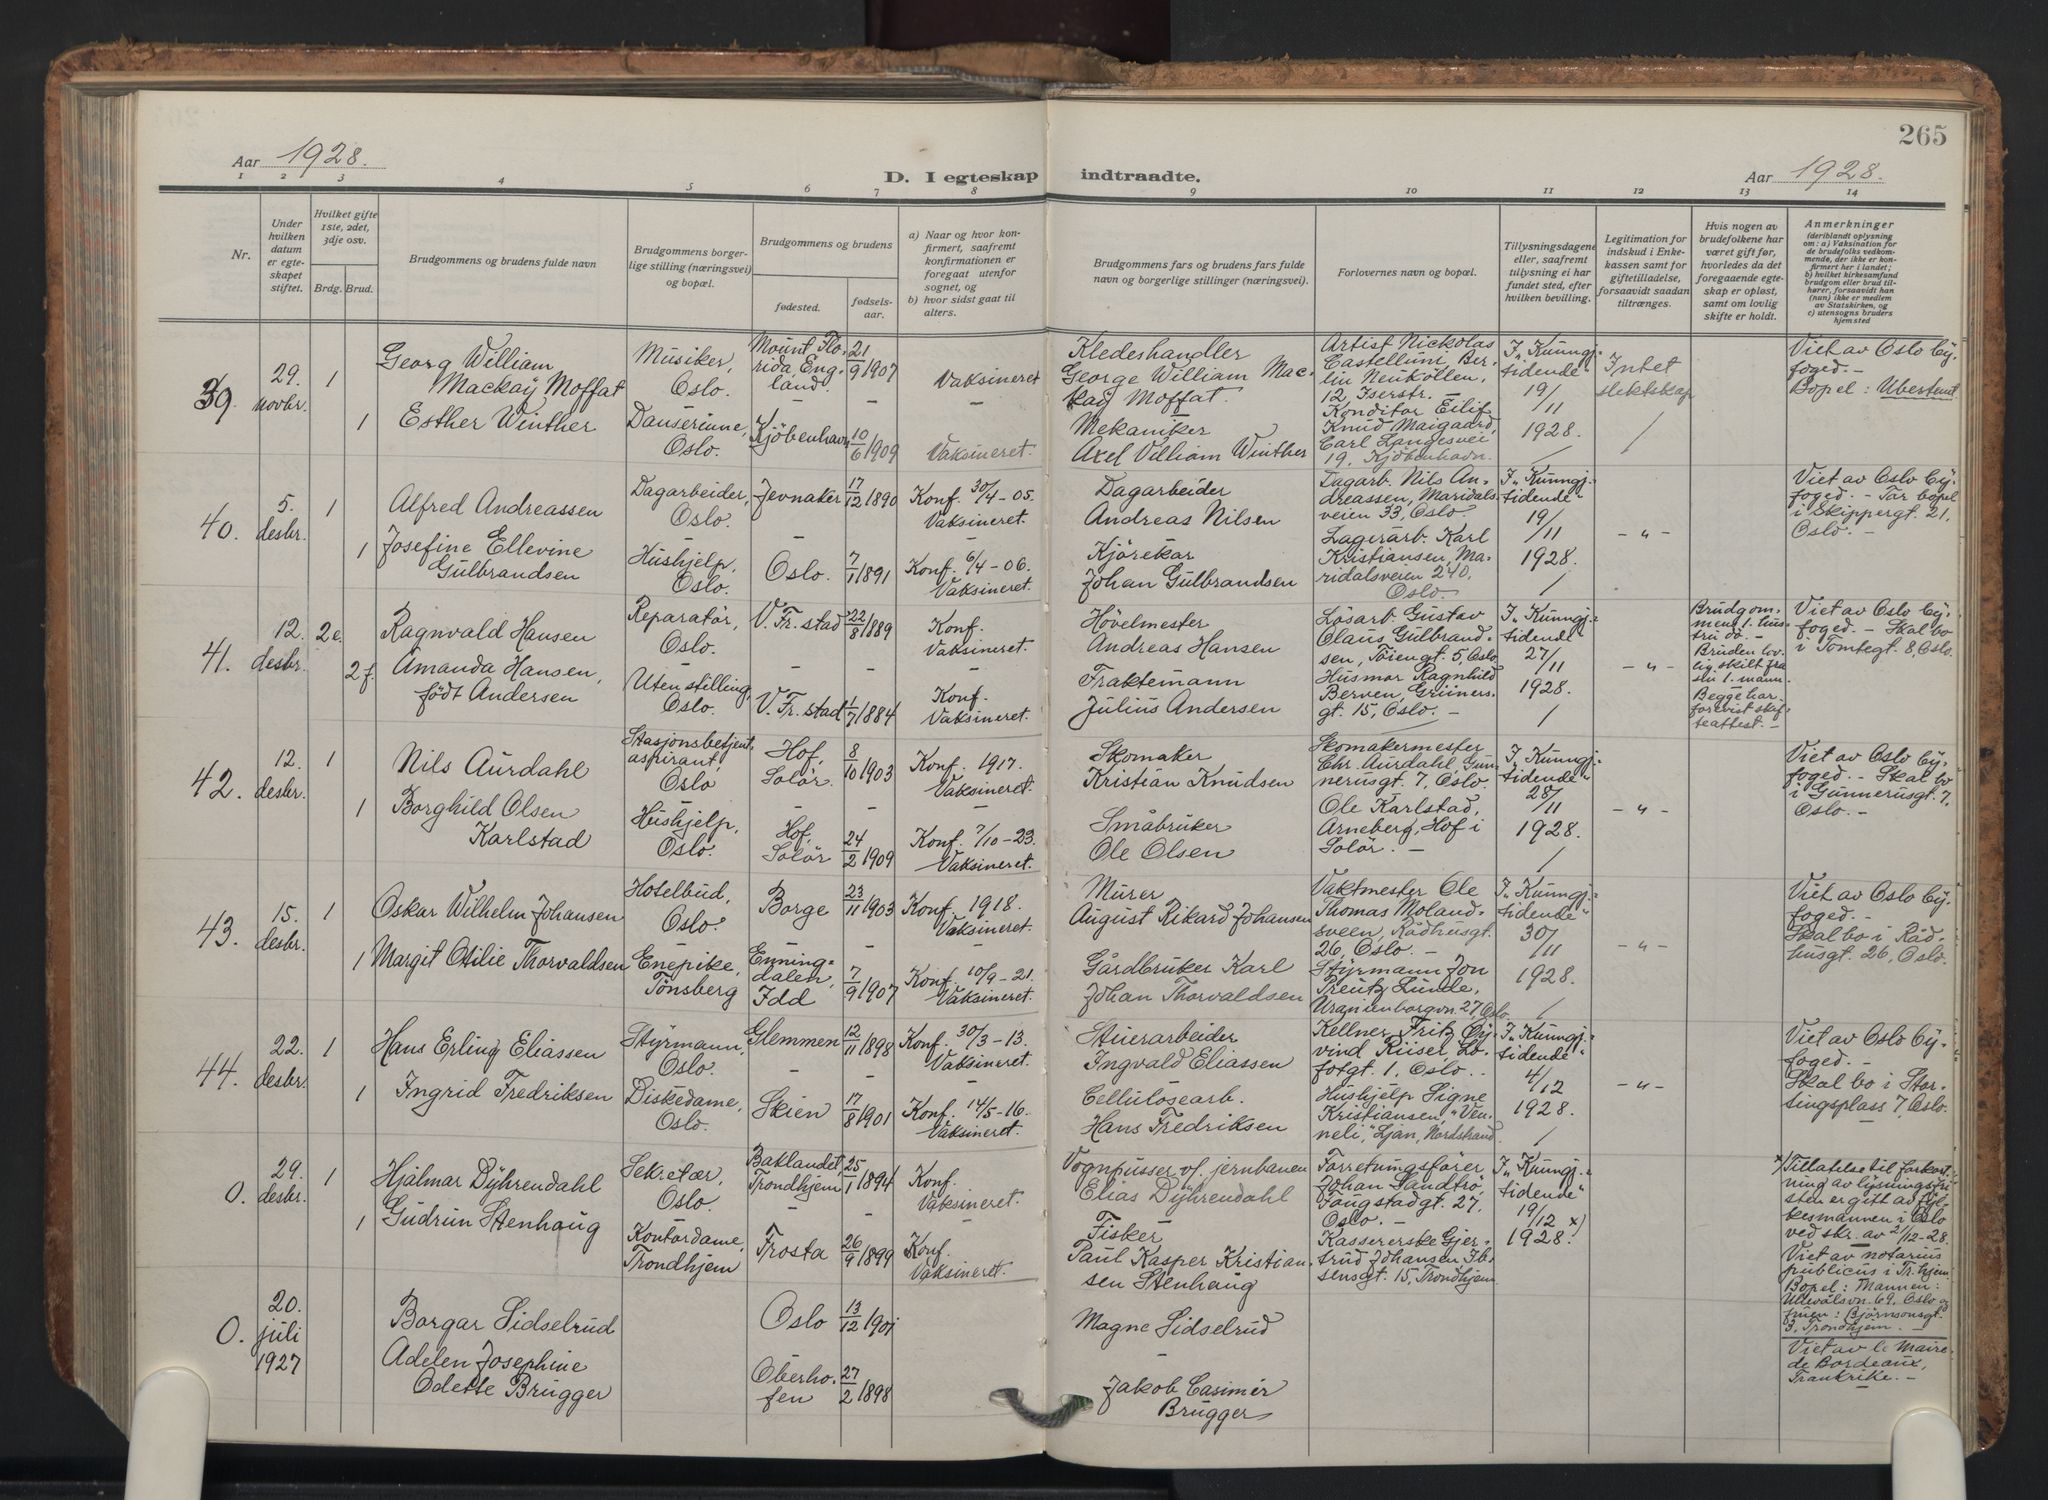 265
Aar 1928.
D. I egteskap indtraadte.
Aar 1928.
1 2 3 4 5 6 7 8 9 10 11 12 13 14
Nr.
Under hvilken datum er egteskapet stiftet.
Hvilket gifte 1ste, 2det, 3dje osv.
Brdg. Brud.
Brudgommens og brudens fulde navn
Brudgommens borgerlige stilling (næringsvei) og bopæl.
Brudgommens og brudens
fødested.
fødselsaar.
a) Naar og hvor konfirmert, saafremt konfirmationen er foregaat utenfor sognet, og
b) hvor sidst gaat til alters.
Brudgommens fars og brudens fars fulde navn og borgerlige stillinger (næringsvei).
Forlovernes navn og bopæl.
Tillysningsdagene eller, saafremt tillysning ei har fundet sted, efter hvilken bevilling.
Legitimation for indskud i Enkekassen samt for giftetilladelse, forsaavidt saadan tiltrænges.
Hvis nogen av brudefolkene har været gift før, hvorledes da det foregaaende egteskap er opløst, samt om lovlig skifte er holdt.
Anmerkninger
(deriblandt oplysning om: a) Vaksination for de brudefolks vedkommende, der ikke er konfirmert her i landet; b) hvilket kirkesamfund brudgom eller brud tilhører, forsaavidt han (hun) ikke er medlem av Statskirken, og c) utensogns bruders hjemsted
39.
29. novbr.
1
Georg William
Mackay Moffat
Musiker,
Oslo.
Mount Florida, England.
21/9 1907
Vaksineret
Kledeshandler
George William Mackay Moffat.
Artist Nickolas
Castelluni, Berlin Neukøllen,
12 Iserstr. –
I „Kunngj.tidende“
19/11
1928.
Intet slektskap
Viet av Oslo Byfoged. –
Bopel: Ubestemt
1
Esther Winther
Danserinne,
Oslo.
Kjöbenhavn
10/6 1909
Vaksineret.
Mekaniker
Axel William Winther
Konditor Eilif
Knud Maigaard,
Carl Langesvei
19, Kjöbenhavn.
40.
5. desbr.
1
Alfred Andreassen
Dagarbeider,
Oslo.
Jevnaker
17/12 1890
Konf. 30/4-05.
Vaksineret.
Dagarbeider
Andreas Nilsen
Dagarb. Nils Andreassen, Maridalsveien 33, Oslo.
I „Kunngj.tidende“
19/11
1928.
-„-
Viet av Oslo Byfoged. – Tar bopel
i Skippergt. 21,
Oslo. –
1
Josefine Ellevine
Gulbrandsen
Hushjelp,
Oslo.
Oslo.
7/1 1891
Konf. 6/4-06.
Vaksineret.
Kjörekar
Johan Gulbrandsen
Lagerarb. Karl
Kristiansen, Maridalsveien 240,
Oslo.
41.
12. desbr.
2 e.
Ragnvald Hansen
Reparatör,
Oslo.
V. Fr. stad
22/8 1889
Konf.
Vaksineret.
Hövelmester
Andreas Hansen
Lösarb. Gustav
Claus Gulbrandsen, Töiengt. 5, Oslo.
I „Kunngj.tidende“
27/11
1928.
-„-
Brudgommens 1. hustru dö. –
Bruden lovlig skilt fra
sin 1. mann.
Begge har
forevist skifteattest. –
Viet av Oslo Byfoged. – Skal bo
i Tomtegt. 8, Oslo.
2 f.
Amanda Hansen,
født Andersen
Uten stilling,
Oslo.
V. Fr. stad
1/7 1884
Konf.
Vaksineret.
Fraktemann
Julius Andersen
Husmor Ragnhild
Berven, Grünersgt. 15, Oslo. –
42.
12. desbr.
1
Nils Aurdahl
Stasjonsbetjentaspirant,
Oslo
Hof,
Solör.
8/10 1903
Konf. 1917.
Vaksineret.
Skomaker
Kristian Knudsen
Skomakermester
Chr. Aurdahl, Gunnerusgt. 7, Oslo.
I „Kunngj.tidende“
28/11
1928.
-„-
Viet av Oslo Byfoged. – Skal bo
i Gunnerusgt. 7,
Oslo. –
1
Borghild Olsen
Karlstad
Hushjelp,
Oslo.
Hof,
Solör
24/2 1909
Konf. 7/10-23.
Vaksineret.
Småbruker
Ole Olsen
Ole Karlstad,
Arneberg, Hof i
Solör. –
43.
15. desbr.
1
Oskar Wilhelm Johansen
Hotelbud,
Oslo.
Borge
23/11 1903
Konf. 1918.
Vaksineret.
Murer
August Rikard Johansen
Vaktmester Ole
Thomas Molandsveen, Rådhusgt.
26, Oslo. –
I „Kunngj.tidende“
30/11
1928.
-„-
Viet av Oslo Byfoged. –
Skal bo i Rådhusgt. 26, Oslo.
1
Margit Otilie Thorvaldsen
Enepike,
Tönsberg
Enningdalen,
Idd
7/9 1907
Konf. 10/9-21.
Vaksineret.
Gårdbruker Karl
Johan Thorvaldsen
Styrmann Jon
Preutz Lunde,
Uranienborgvn. 27, Oslo.
44.
22. desbr.
1
Hans Erling Eliassen
Styrmann,
Oslo.
Glemmen
12/11 1898
Konf. 30/3-13.
Vaksineret.
Stuerarbeider
Ingvald Eliassen
Kellner Fritz Öyvind Riiser, Lofotgt. 1. Oslo.
I „Kunngj.tidende“
4/12
1928.
-„-
Viet av Oslo Byfoged. –
Skal bo i Stortingsplass 7, Oslo.
1
Ingrid Fredriksen
Diskedame,
Oslo.
Skien
17/8 1901
Konf. 14/5-16.
Vaksineret.
Cellulosearb.
Hans Fredriksen
Hushjelp Signe
Kristiansen, „Venneli,“ Ljan, Nordstrand.
0.
29. desbr.
1
Hjalmar Dyhrendahl
Sekretær,
Oslo.
Baklandet,
Trondhjem
25/1 1894
Konf.
Vaksineret.
Vognpusser v/ jernbanen
Elias Dyhrendahl
Forretningsfører
Johan Sandtrö
Faugstadgt. 27,
Oslo. –
I „Kunngj.tidende“
19/12 x)
1928.
x) Tillatelse til forkortning av lysningsfristen er gitt av fylkesmannen i Oslo
ved skr. av 21/12-28.
Viet av notarius
publicus i Tr.hjem.
Bopel: Mannen:
Ullevålsvn. 69, Oslo og
fruen: Björnsonsgt.
3, Trondhjem. –
1
Gudrun Stenhaug
Kontordame,
Trondhjem
Frosta
26/9 1899
Konf.
Vaksineret.
Fisker
Paul Kasper Kristiansen Stenhaug
Kassererske Gjertrud Johansen Ibsensgt. 15, Trondhjem
0.
20. juli 1927
Borgar Sidselrud
Oslo
13/12 1901
Magne Sidselrud
Viet av le Maire
de Bordeaux,
Frankrike. –
Adelen Josephine
Odette Brugger
Oberhofen
27/2 1898
Jakob Casimir
Brugger